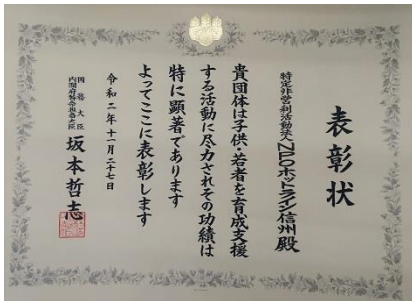 表彰状
特定非営利活動法人NPOホットライン信州 殿
貴団体は子供・若者を育成支援
する活動に尽力されその功績は
特に顕著であります
よってここに表彰します
令和二年十一月二十七日
国務大臣
内閣府特命担当大臣
坂本哲志